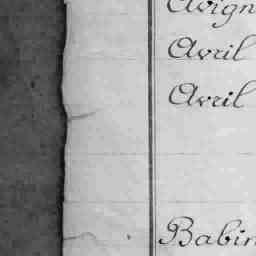 Avign
Avril
Avril
Babin